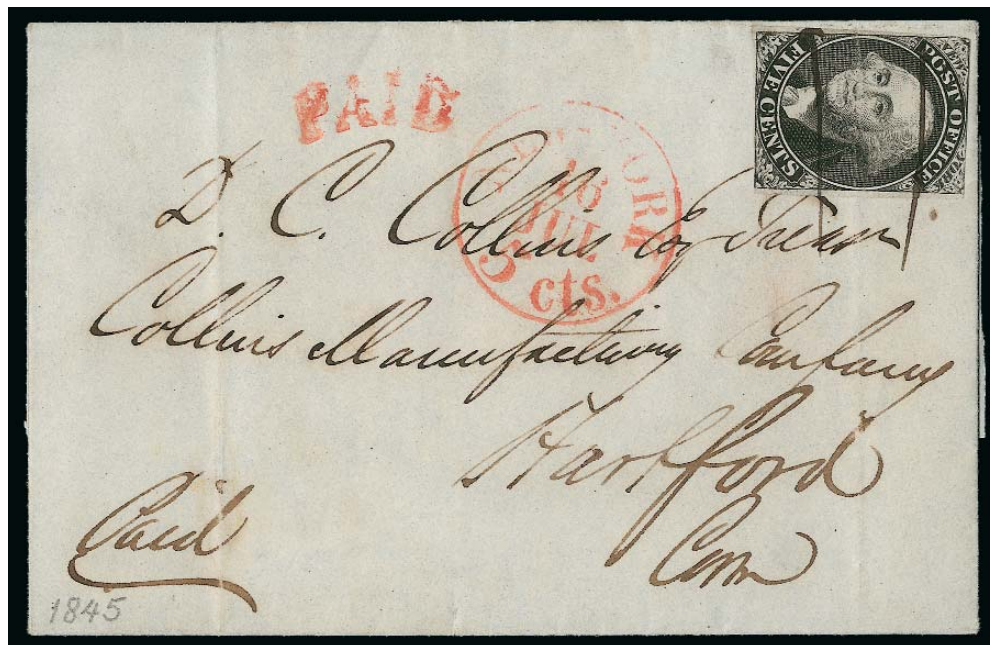 POST OFFICE
FIVE CENTS
PAID
NEW-YORK
16
JUL
5 cts.
D. C. Collins Esq Treasr
Collins Manufacturing Company
Hartford
Conn
Paid
1845